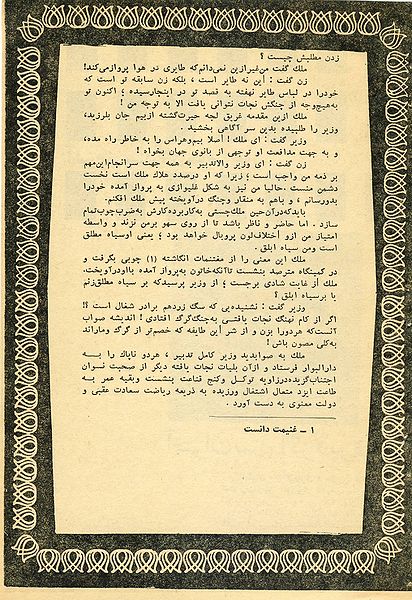 زدن مطلبش چیست؟
ملك گفت من‌غیرازین نمی‌دانم‌که طایری در هوا پروازمی‌کند!
زن گفت : این نه طایر است ، بلکه زن سابقه تو است که
خودرا در لباس طایر نهفته به قصد تو در اینجارسیده ؛ اکنون تو
به‌هیچ‌وجه از چنگش نجات نتوانی یافت الا به توجه من !
ملك ازین مقدمه غریق لجه حیرت‌گشته ازبیم جان بلرزید،
وزیر را طلبیده بدین سر آگاهی بخشید .
وزیر گفت : ای ملك ! اصلا بیم‌وهراس را به خاطر راه مده،
و به جهت مدافعت او توجهی از بانوی جهان بخواه !
زن گفت : ای وزیر والاتدبیر به همه جهت سرانجام‌این‌مهم
بر ذمه من واجب است ؛ زیرا که او درصدد هلاك ملك است نخست
دشمن منست . حالیا من نیز به شکل غلیوازی به پرواز آمده خودرا
بدورسانم ، و باهم به منقار وچنگ درآویخته پیش ملك افکنم.
بایدکه‌درآن‌حین ملك‌چستی به‌کاربرده‌کارش به‌ضرب‌چوب‌تمام
سازد . اما حاضر و ناظر باشد تا از روی سهو برمن نزند و واسطه
امتیاز من ازو اختلاف‌لون پروبال خواهد بود ؛ یعنی اوسیاه مطلق
است ومن سیاه ابلق .
ملك این معنی را از مغتنمات انگاشته (۱) چوبی بگرفت و
در کمینگاه مترصد بنشست تاآنکه‌خاتون به‌پرواز آمده بااودرآویخت.
ملك از غایت شادی برجست ؛ از وزیر پرسیدکه بر سیاه مطلق‌زنم
یا برسیاه ابلق ؟
وزیر گفت : نشنیده‌یی که سگ زردهم برادر شغال است ؟!
اگر از کام نهنگ نجات یافتی به‌چنگ‌گرگ افتادی ! اندیشه صواب
آنست‌که هردورا بزن و از شر این طایفه که خصم‌تر از گرگ وماراند
به‌کلی مصون باش !
ملك به صوابدید وزیر کامل تدبیر ، هردو ناپاك را بــه
دارالبوار فرستاد و ازآن بلیات نجات یافته دیگر از صحبت نسوان
اجتناب‌گزیده‌درزاویه توکــل وکنج قناعت بنشست وبقیه عمر به
طاعت ایزد متعال اشتغال ورزیده به ذریعه ریاضت سعادت عقبی و
دولت معنوی به دست آورد .
۱ ـ غنیمت دانست